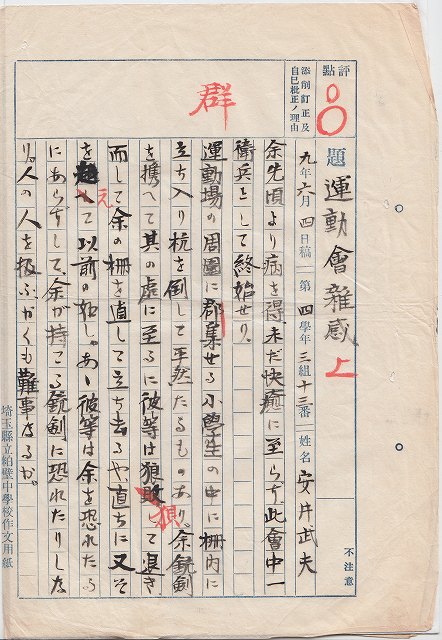 評點
80
添削訂正及
自己批正ノ理由
群
題 運動會雜感 上
九年六月四日稿 第四學年三組十三番 姓名 安井武夫
不注意
余先頃より病を得、未だ快癒に至らず、此會中一
衛兵として終始せり。
運動場の周圍に郡集せる小學生の中に柵内に
立ち入り杭を倒して平然たるものあり。余銃劍
を携へて其の處に至るに彼等は狼敗して退き
狼
而して余の柵を直して立ち去るや直ちに又そ
え
を越へて以前の如し。あゝ彼等は余を恐れたる
にあらずして、余が持てる銃劍に恐れたりしな
り。人の人を扱ふ、かくも難事なるか。
埼玉縣立粕壁中學校作文用紙